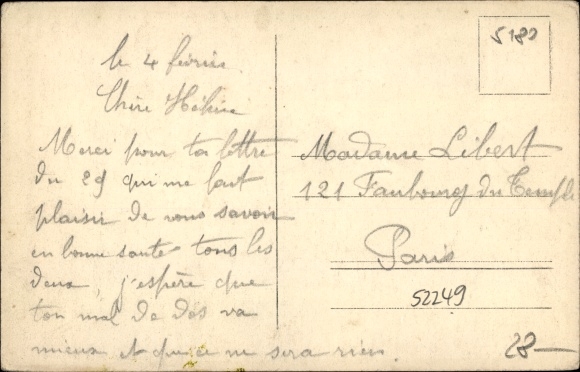 le 4 février
Chère Hélène
Merci pour ta lettre
du 29 qui me fait
plaisir de vous savoir
en bonne santé tous les
deux, j'espère que
ton mal de dos va
mieux et que ce ne sera rien.
5180
Madame Libert
121 Faubourg du Temple
Paris
52249
28—